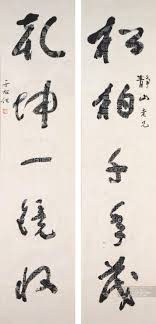 松柏千年茂
青山老兄
乾坤一鏡收
于右任